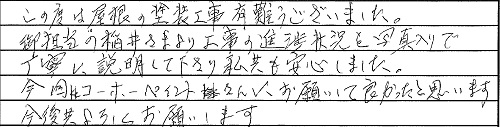 この度は屋根の塗装工事有難うございました。
御担当の稲井さまより工事の進捗状況を写真入りで
丁寧に説明して下さり私共も安心しました。
今回はコーホーペイントさんに、お願いして良かったと思います
今後共よろしくお願いします